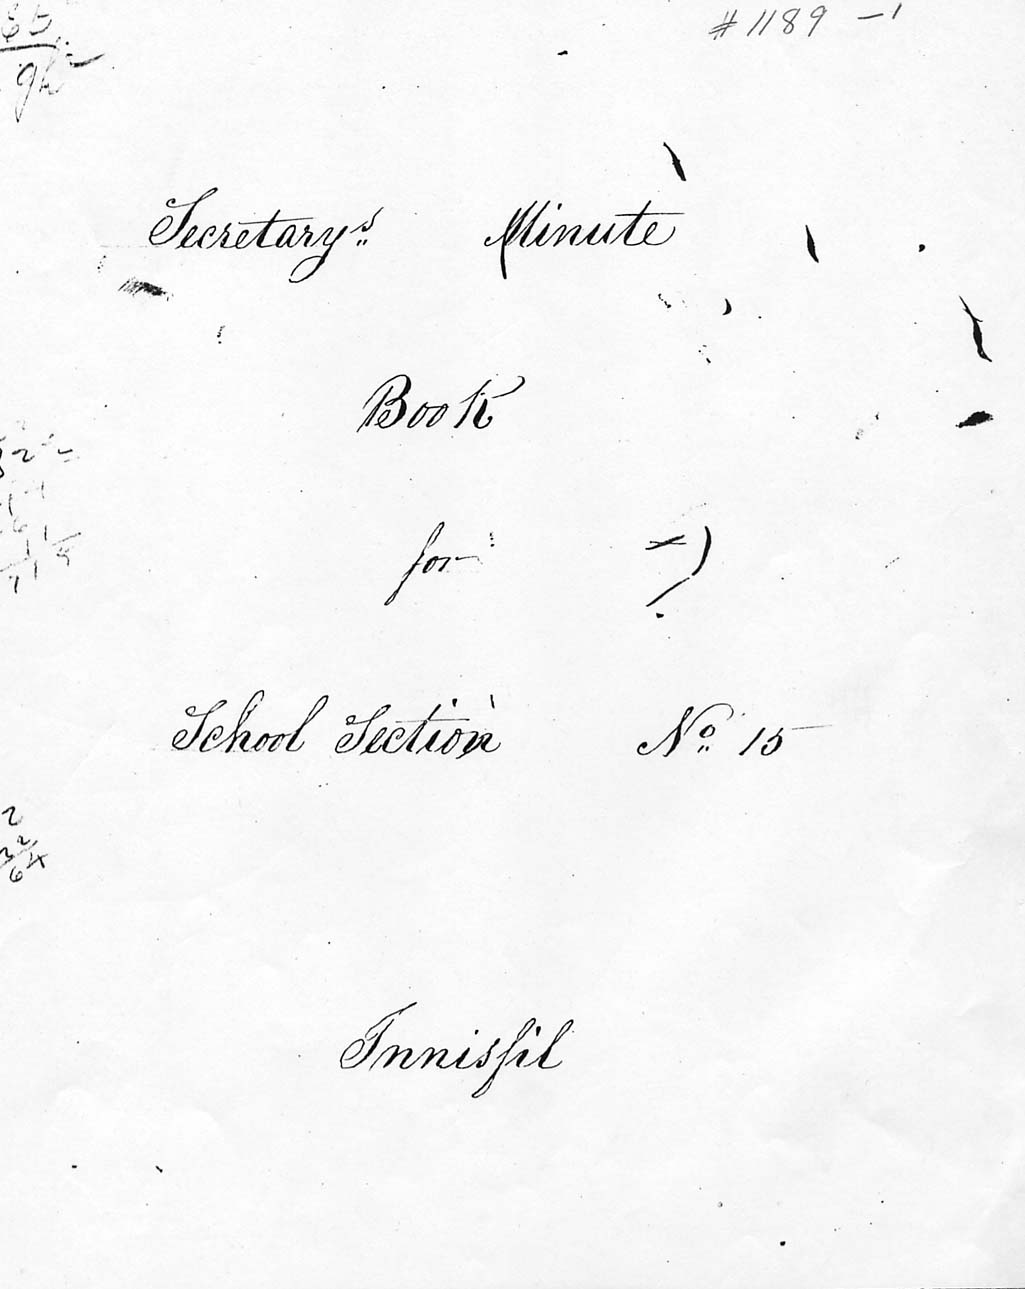 #1189 -1
Secretarys Minute
Book
for
School Section No 15
Innisfil